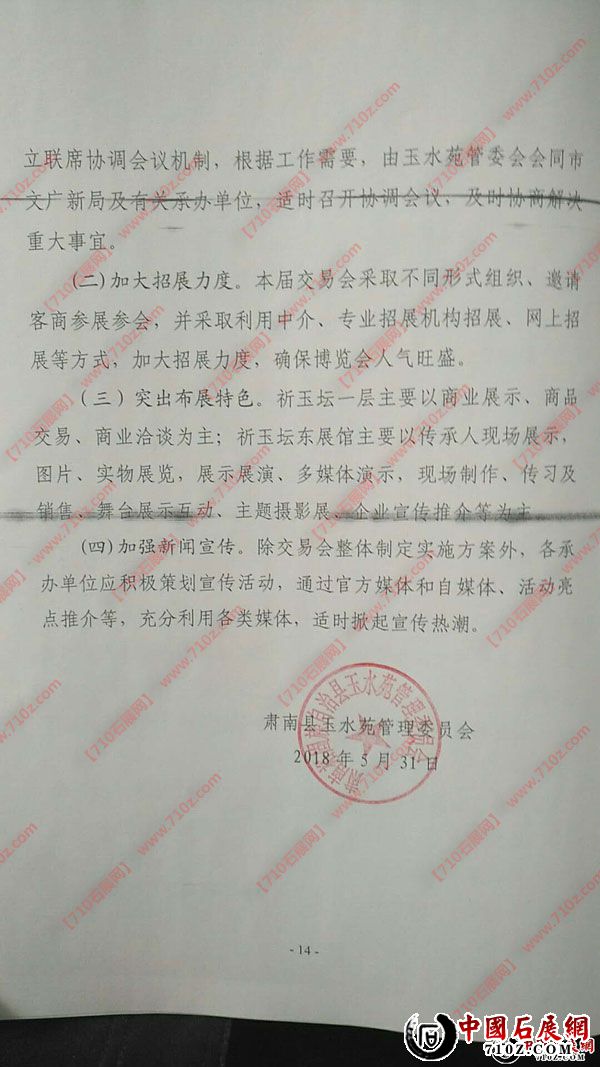 立联席协调会议机制，根据工作需要，由玉水苑管委会会同市
文广新局及有关承办单位，适时召开协调会议，及时协商解决
重大事宜。
（二）加大招展力度。本届交易会采取不同形式组织、邀请
客商参展参会，并采取利用中介、专业招展机构招展、网上招
展等方式，加大招展力度，确保博览会人气旺盛。
（三）突出布展特色。祈玉坛一层主要以商业展示、商品
交易、商业洽谈为主；祈玉坛东展馆主要以传承人现场展示，
图片、实物展览，展示展演、多媒体演示，现场制作、传习及
销售、舞台展示互动、主题摄影展、企业宣传推介等为主
（四）加强新闻宣传。除交易会整体制定实施方案外，各承
办单位应积极策划宣传活动，通过官方媒体和自媒体、活动亮
点推介等，充分利用各类媒体，适时掀起宣传热潮。
肃南县玉水苑管理委员会
2018 年 5 月 31 日
肃南裕固族自治县玉水苑管理委员会
- 14 -
【710石展网】www.710z.com
中國石展網
710Z.COM